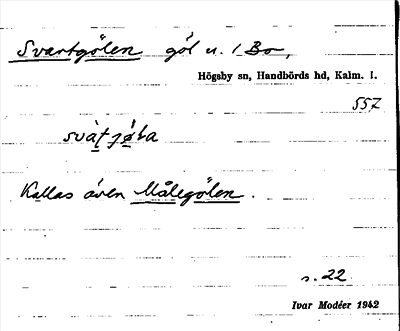 Svartgölen göl n. /Bo,
Högsby sn, Handbörds hd, Kalm. l.
557
Kallas även Målegölen.
s. 22
Ivar Modéer 1942